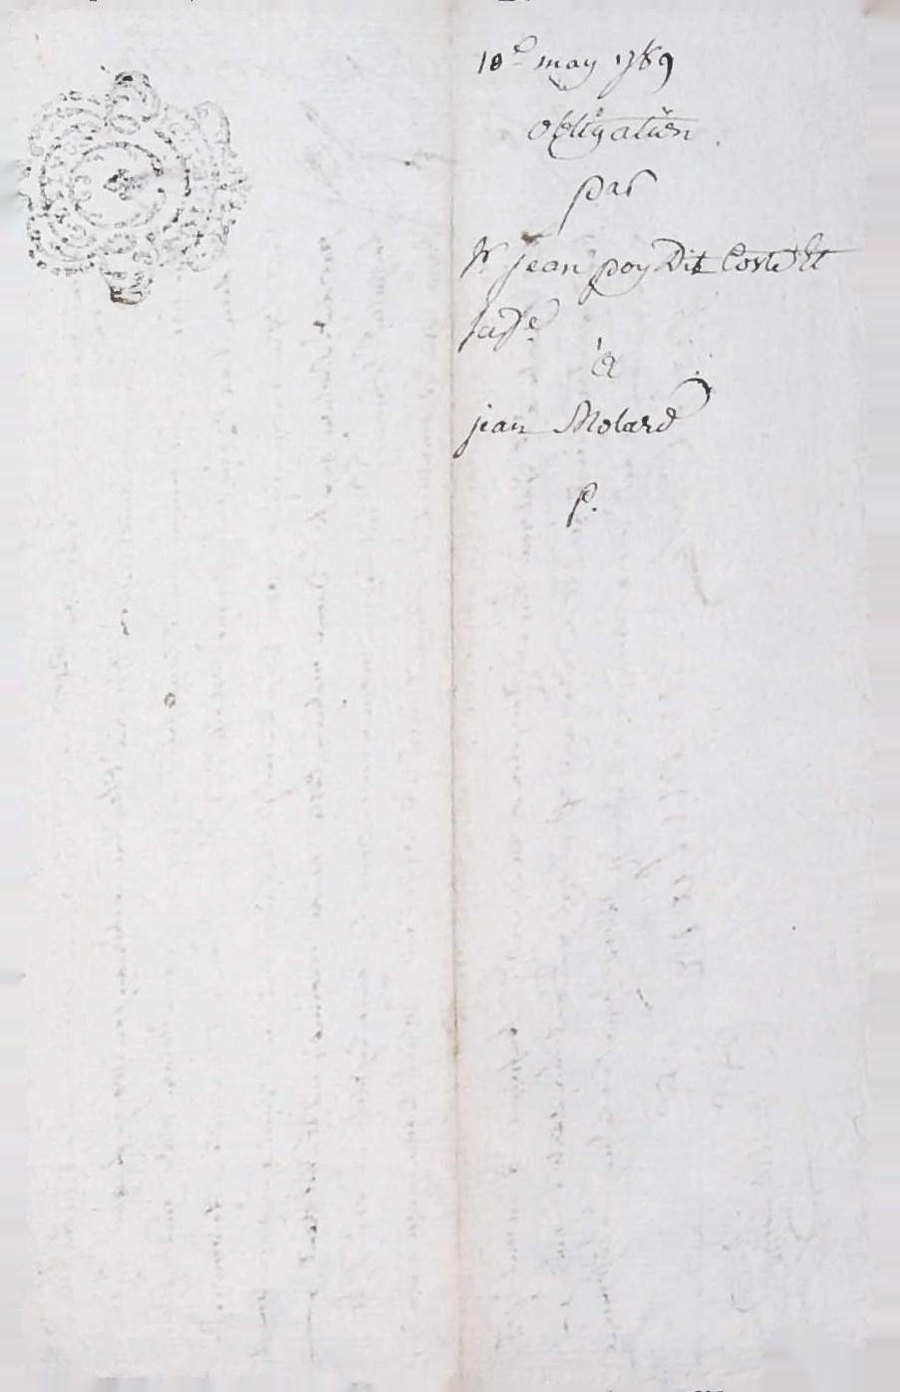 10e may 1789
obligation
par
Sr jean poy Dit Coste Et
sa fe
à
jean Molard
p.